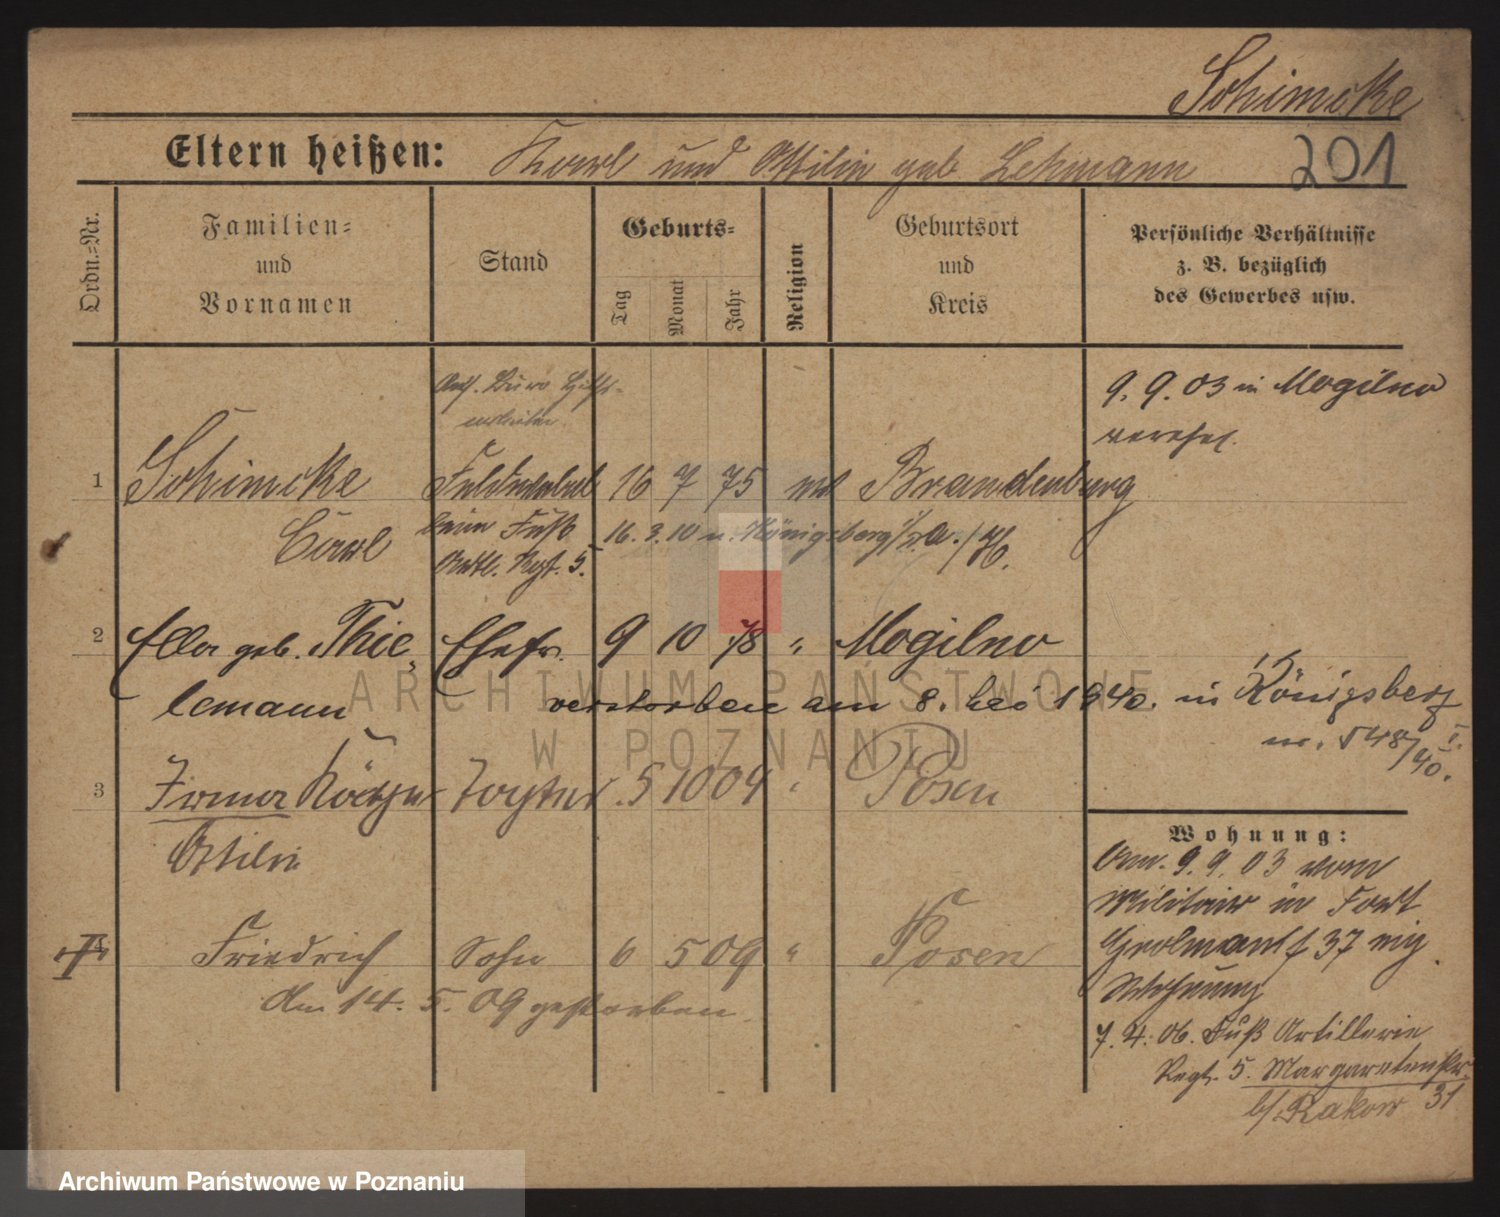 Schimcke
201
Eltern heißen: Karl und Ottilie geb Lehmann
Ordn.-Nr.
Familien- und Vornamen
Stand
Geburts-
Tag
Monat
Jahr
Religion
Geburtsort und Kreis
Persönliche Verhältnisse
z. B. bezüglich
des Gewerbes usw.
9. 9. 03 in Mogilno
verehel.
1 Schimcke Feldwebel 16 7 75 Brandenburg
Carl beim Fuß 16. 3. 10 n. Königsberg i/Pr.
Artl. Rgt. 5.
2 Ella geb. Thie- Ehefr. 9 10 78 " Mogilno
lemann verstorben am 8. 1940. in Königsberg
548/40.
3 Irma Tochter 5 10 04 " Posen
Ottilie
4 Friedrich Sohn 6 5 09 " Posen
Am 14. 5. 09 gestorben
Wohnung:
Am. 9. 9. 03 vom
Militair in Fort
Grolman 37
Wohnung
7. 4. 06. Fuß Artillerie
Regt. 5. Margaretenstr.
b/ Rakow 31
ARCHIWUM PAŃSTWOWE
W POZNANIU
Archiwum Państwowe w Poznaniu